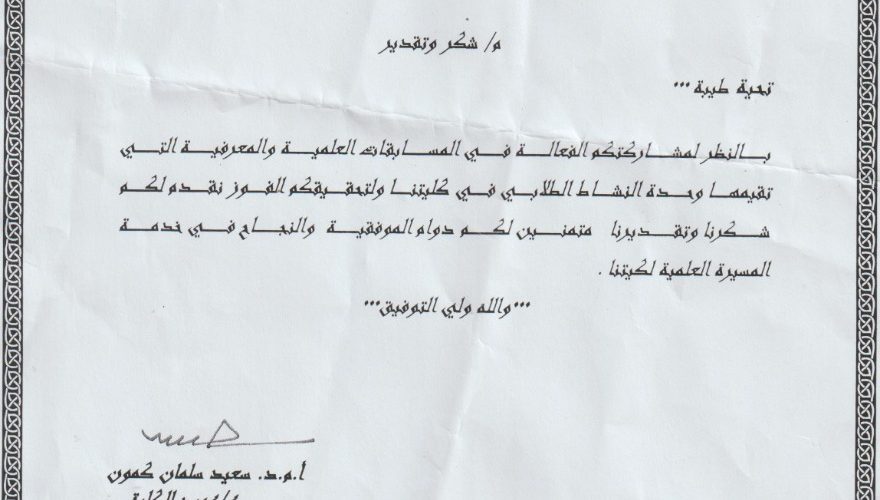 م/ شكر وتقدير
تحية طيبة ***
بالنظر لمشاركتكم الفعالة في المسابقات العلمية والمعرفية التي
تقيمها وحدة النشاط الطلابي في كليتنا ولتحقيقكم الفوز نقدم لكم
شكرنا وتقديرنا متمنين لكم دوام الموفقية والنجاح في خدمة
المسيرة العلمية لكيتنا .
***والله ولي التوفيق***
أ.م.د. سعيد سلمان كمون